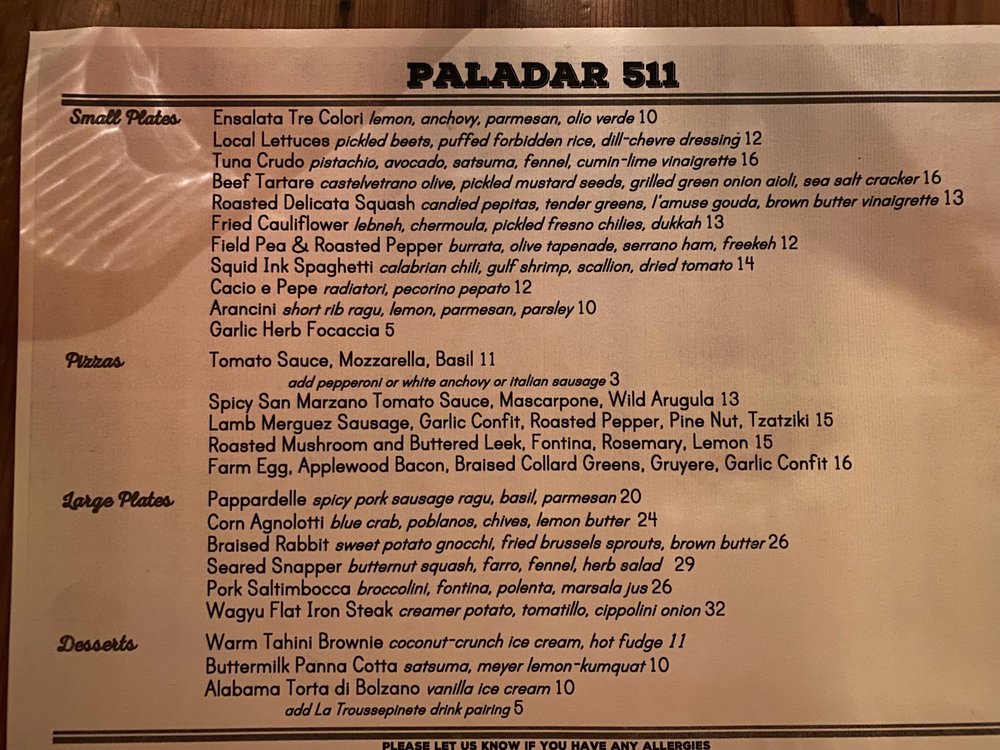 PALADAR 511
Small Plates
Ensalata Tre Colori lemon, anchovy, parmesan, olio verde 10
Local Lettuces pickled beets, puffed forbidden rice, dill-chevre dressing 12
Tuna Crudo pistachio, avocado, satsuma, fennel, cumin-lime vinaigrette 16
Beef Tartare castelvetrano olive, pickled mustard seeds, grilled green onion aioli, sea salt cracker 16
Roasted Delicata Squash candied pepitas, tender greens, l'amuse gouda, brown butter vinaigrette 13
Fried Cauliflower lebneh, chermoula, pickled fresno chilies, dukkah 13
Field Pea & Roasted Pepper burrata, olive tapenade, serrano ham, freekeh 12
Squid Ink Spaghetti calabrian chili, gulf shrimp, scallion, dried tomato 14
Cacio e Pepe radiatori, pecorino pepato 12
Arancini short rib ragu, lemon, parmesan, parsley 10
Garlic Herb Focaccia 5
Pizzas
Tomato Sauce, Mozzarella, Basil 11
add pepperoni or white anchovy or italian sausage 3
Spicy San Marzano Tomato Sauce, Mascarpone, Wild Arugula 13
Lamb Merguez Sausage, Garlic Confit, Roasted Pepper, Pine Nut, Tzatziki 15
Roasted Mushroom and Buttered Leek, Fontina, Rosemary, Lemon 15
Farm Egg, Applewood Bacon, Braised Collard Greens, Gruyere, Garlic Confit 16
Large Plates
Pappardelle spicy pork sausage ragu, basil, parmesan 20
Corn Agnolotti blue crab, poblanos, chives, lemon butter 24
Braised Rabbit sweet potato gnocchi, fried brussels sprouts, brown butter 26
Seared Snapper butternut squash, farro, fennel, herb salad 29
Pork Saltimbocca broccolini, fontina, polenta, marsala jus 26
Wagyu Flat Iron Steak creamer potato, tomatillo, cippolini onion 32
Desserts
Warm Tahini Brownie coconut-crunch ice cream, hot fudge 11
Buttermilk Panna Cotta satsuma, meyer lemon-kumquat 10
Alabama Torta di Bolzano vanilla ice cream 10
add La Troussepinete drink pairing 5
PLEASE LET US KNOW IF YOU HAVE ANY ALLERGIES